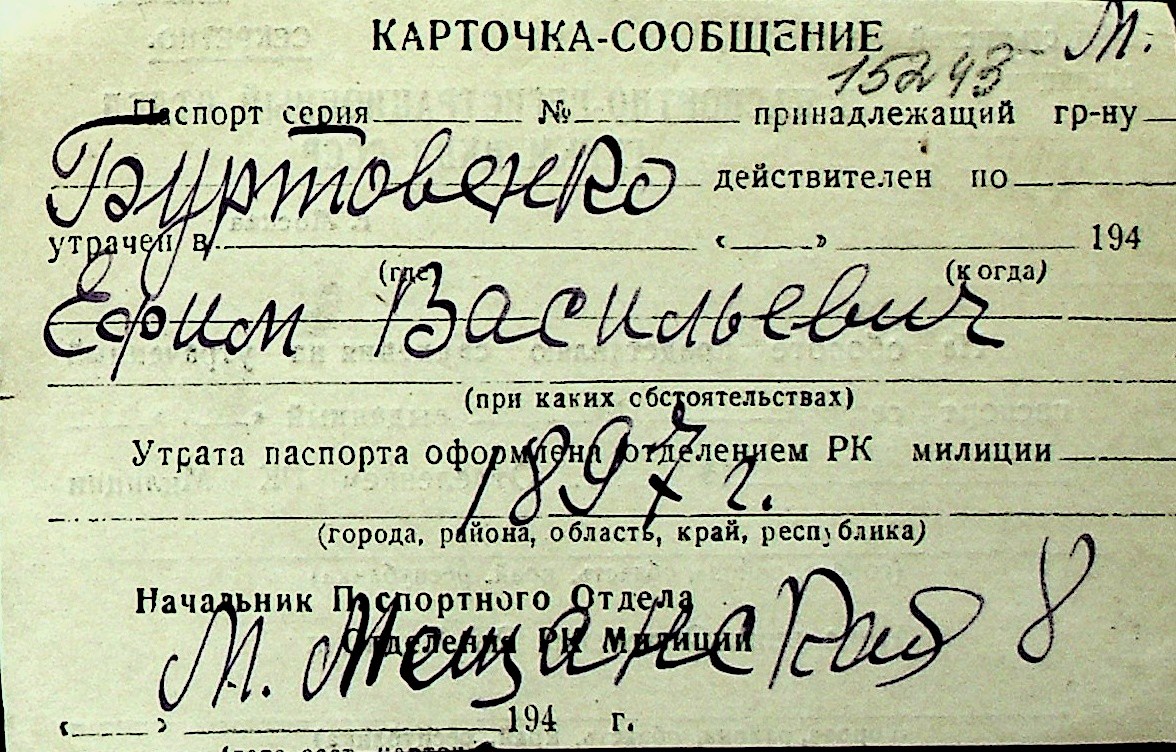 КАРТОЧКА-СООБЩЕНИЕ М.
15243
Паспорт серия № принадлежащий гр-ну
Буртовенко действителен по
утрачен в « » 194
(где) (когда)
Ефим Васильевич
(при каких обстоятельствах)
Утрата паспорта оформлена отделением РК милиции
1897 г.
(города, района, область, край, республика)
Начальник Паспортного Отдела
Отделения РК Милиции
М. Мещанская 8
« » 194 г.